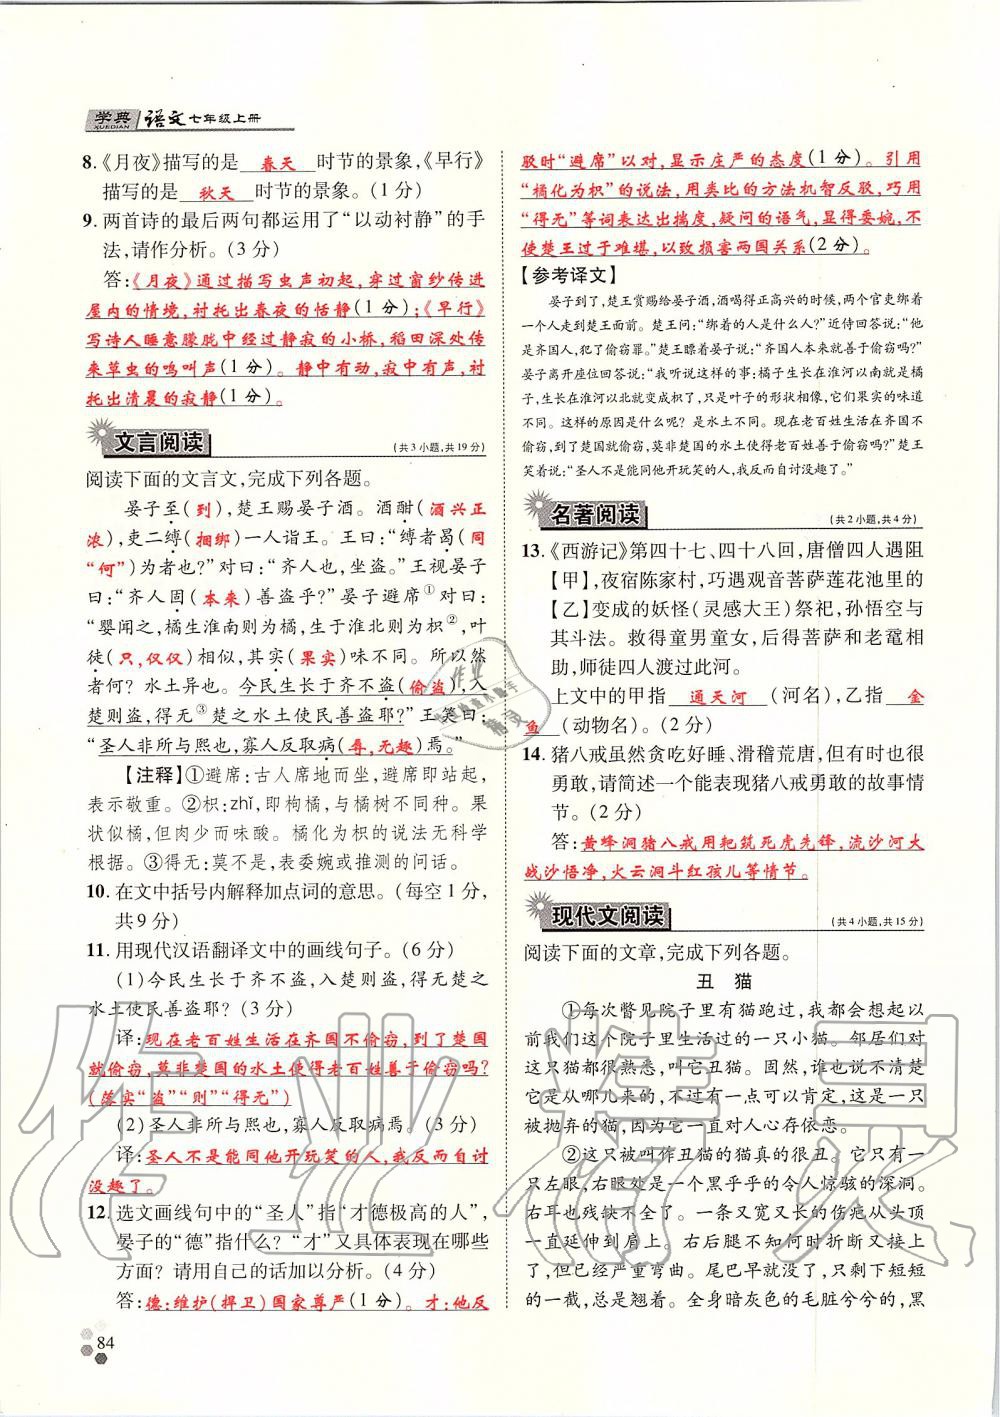 学典 语文七年级上册
XUEDIAN
8.《月夜》描写的是 春天 时节的景象,《早行》
描写的是 秋天 时节的景象。(1分)
9. 两首诗的最后两句都运用了“以动衬静”的手
法,请作分析。(3分)
答:《月夜》通过描写虫声初起,穿过窗纱传进
屋内的情境,衬托出春夜的恬静(1分);《早行》
写诗人睡意朦胧中经过静寂的小桥,稻田深处传
来草虫的鸣叫声(1分)。静中有动,寂中有声,衬
托出清晨的寂静(1分)。
文言阅读 (共3小题,共19分)
阅读下面的文言文,完成下列各题。
晏子至(到),楚王赐晏子酒。酒酣(酒兴正
浓),吏二缚(捆绑)一人诣王。王曰:“缚者曷(同
“何”)为者也?”对曰:“齐人也,坐盗。”王视晏子
曰:“齐人固(本来)善盗乎?”晏子避席①对曰:
“婴闻之,橘生淮南则为橘,生于淮北则为枳②,叶
徒(只,仅仅)相似,其实(果实)味不同。所以然
者何?水土异也。今民生长于齐不盗(偷盗),入
楚则盗,得无③楚之水土使民善盗耶?”王笑曰:
“圣人非所与熙也,寡人反取病(辱,无趣)焉。”
【注释】①避席:古人席地而坐,避席即站起,
表示敬重。②枳:zhǐ,即枸橘,与橘树不同种。果
状似橘,但肉少而味酸。橘化为枳的说法无科学
根据。③得无:莫不是,表委婉或推测的问话。
10. 在文中括号内解释加点词的意思。(每空1分,
共9分)
11. 用现代汉语翻译文中的画线句子。(6分)
(1)今民生长于齐不盗,入楚则盗,得无楚之
水土使民善盗耶?(3分)
译:现在老百姓生活在齐国不偷窃,到了楚国
就偷窃,莫非楚国的水土使得老百姓善于偷窃吗?
(落实“盗”“则”“得无”)
(2)圣人非所与熙也,寡人反取病焉。(3分)
译:圣人不是能同他开玩笑的人,我反而自讨
没趣了。
12. 选文画线句中的“圣人”指“才德极高的人”,
晏子的“德”指什么?“才”又具体表现在哪些
方面?请用自己的话加以分析。(4分)
答:德:维护(捍卫)国家尊严(1分)。才:他反
84
驳时“避席”以对,显示庄严的态度(1分)。引用
“橘化为枳”的说法,用类比的方法机智反驳,巧用
“得无”等词表达出揣度,疑问的语气,显得委婉,不
使楚王过于难堪,以致损害两国关系(2分)。
【参考译文】
晏子到了,楚王赏赐给晏子酒,酒喝得正高兴的时候,两个官吏绑着
一个人走到楚王面前。楚王问:“绑着的人是什么人?”近侍回答说:“他
是齐国人,犯了偷窃罪。”楚王瞟着晏子说:“齐国人本来就善于偷窃吗?”
晏子离开座位回答说:“我听说这样的事:橘子生长在淮河以南就是橘
子,生长在淮河以北就变成枳了,只是叶子的形状相像,它们果实的味道
不同。这样的原因是什么呢?是水土不同。现在老百姓生活在齐国不
偷窃,到了楚国就偷窃,莫非楚国的水土使得老百姓善于偷窃吗?”楚王
笑着说:“圣人不是能同他开玩笑的人,我反而自讨没趣了。”
名著阅读 (共2小题,共4分)
13.《西游记》第四十七、四十八回,唐僧四人遇阻
【甲】,夜宿陈家村,巧遇观音菩萨莲花池里的
【乙】变成的妖怪(灵感大王)祭祀,孙悟空与
其斗法。救得童男童女,后得菩萨和老鼋相
助,师徒四人渡过此河。
上文中的甲指 通天河 (河名),乙指 金
鱼 (动物名)。(2分)
14. 猪八戒虽然贪吃好睡、滑稽荒唐,但有时也很
勇敢,请简述一个能表现猪八戒勇敢的故事情
节。(2分)
答:黄蜂洞猪八戒用耙筑死虎先锋,流沙河大
战沙悟净,火云洞斗红孩儿等情节。
现代文阅读 (共4小题,共15分)
阅读下面的文章,完成下列各题。
丑 猫
①每次瞥见院子里有猫跑过,我都会想起以
前我们这个院子里生活过的一只小猫。邻居们对
这只猫都很熟悉,叫它丑猫。固然,谁也说不清楚
它是从哪儿来的,不过有一点可以肯定,这是一只
被抛弃的猫,因为它一直都对人心存依恋。
②这只被叫作丑猫的猫真的很丑。它只有一
只左眼,右眼处是一个黑乎乎的令人惊骇的深洞。
右耳也残缺不全。一条又宽又长的伤疤从头顶
一直延伸到肩上。右后腿不知何时折断又接上
了,但已经严重弯曲。尾巴早就没了,只剩下短短
的一截,总是翘着。全身暗灰色的毛脏兮兮的,黑
作业精灵